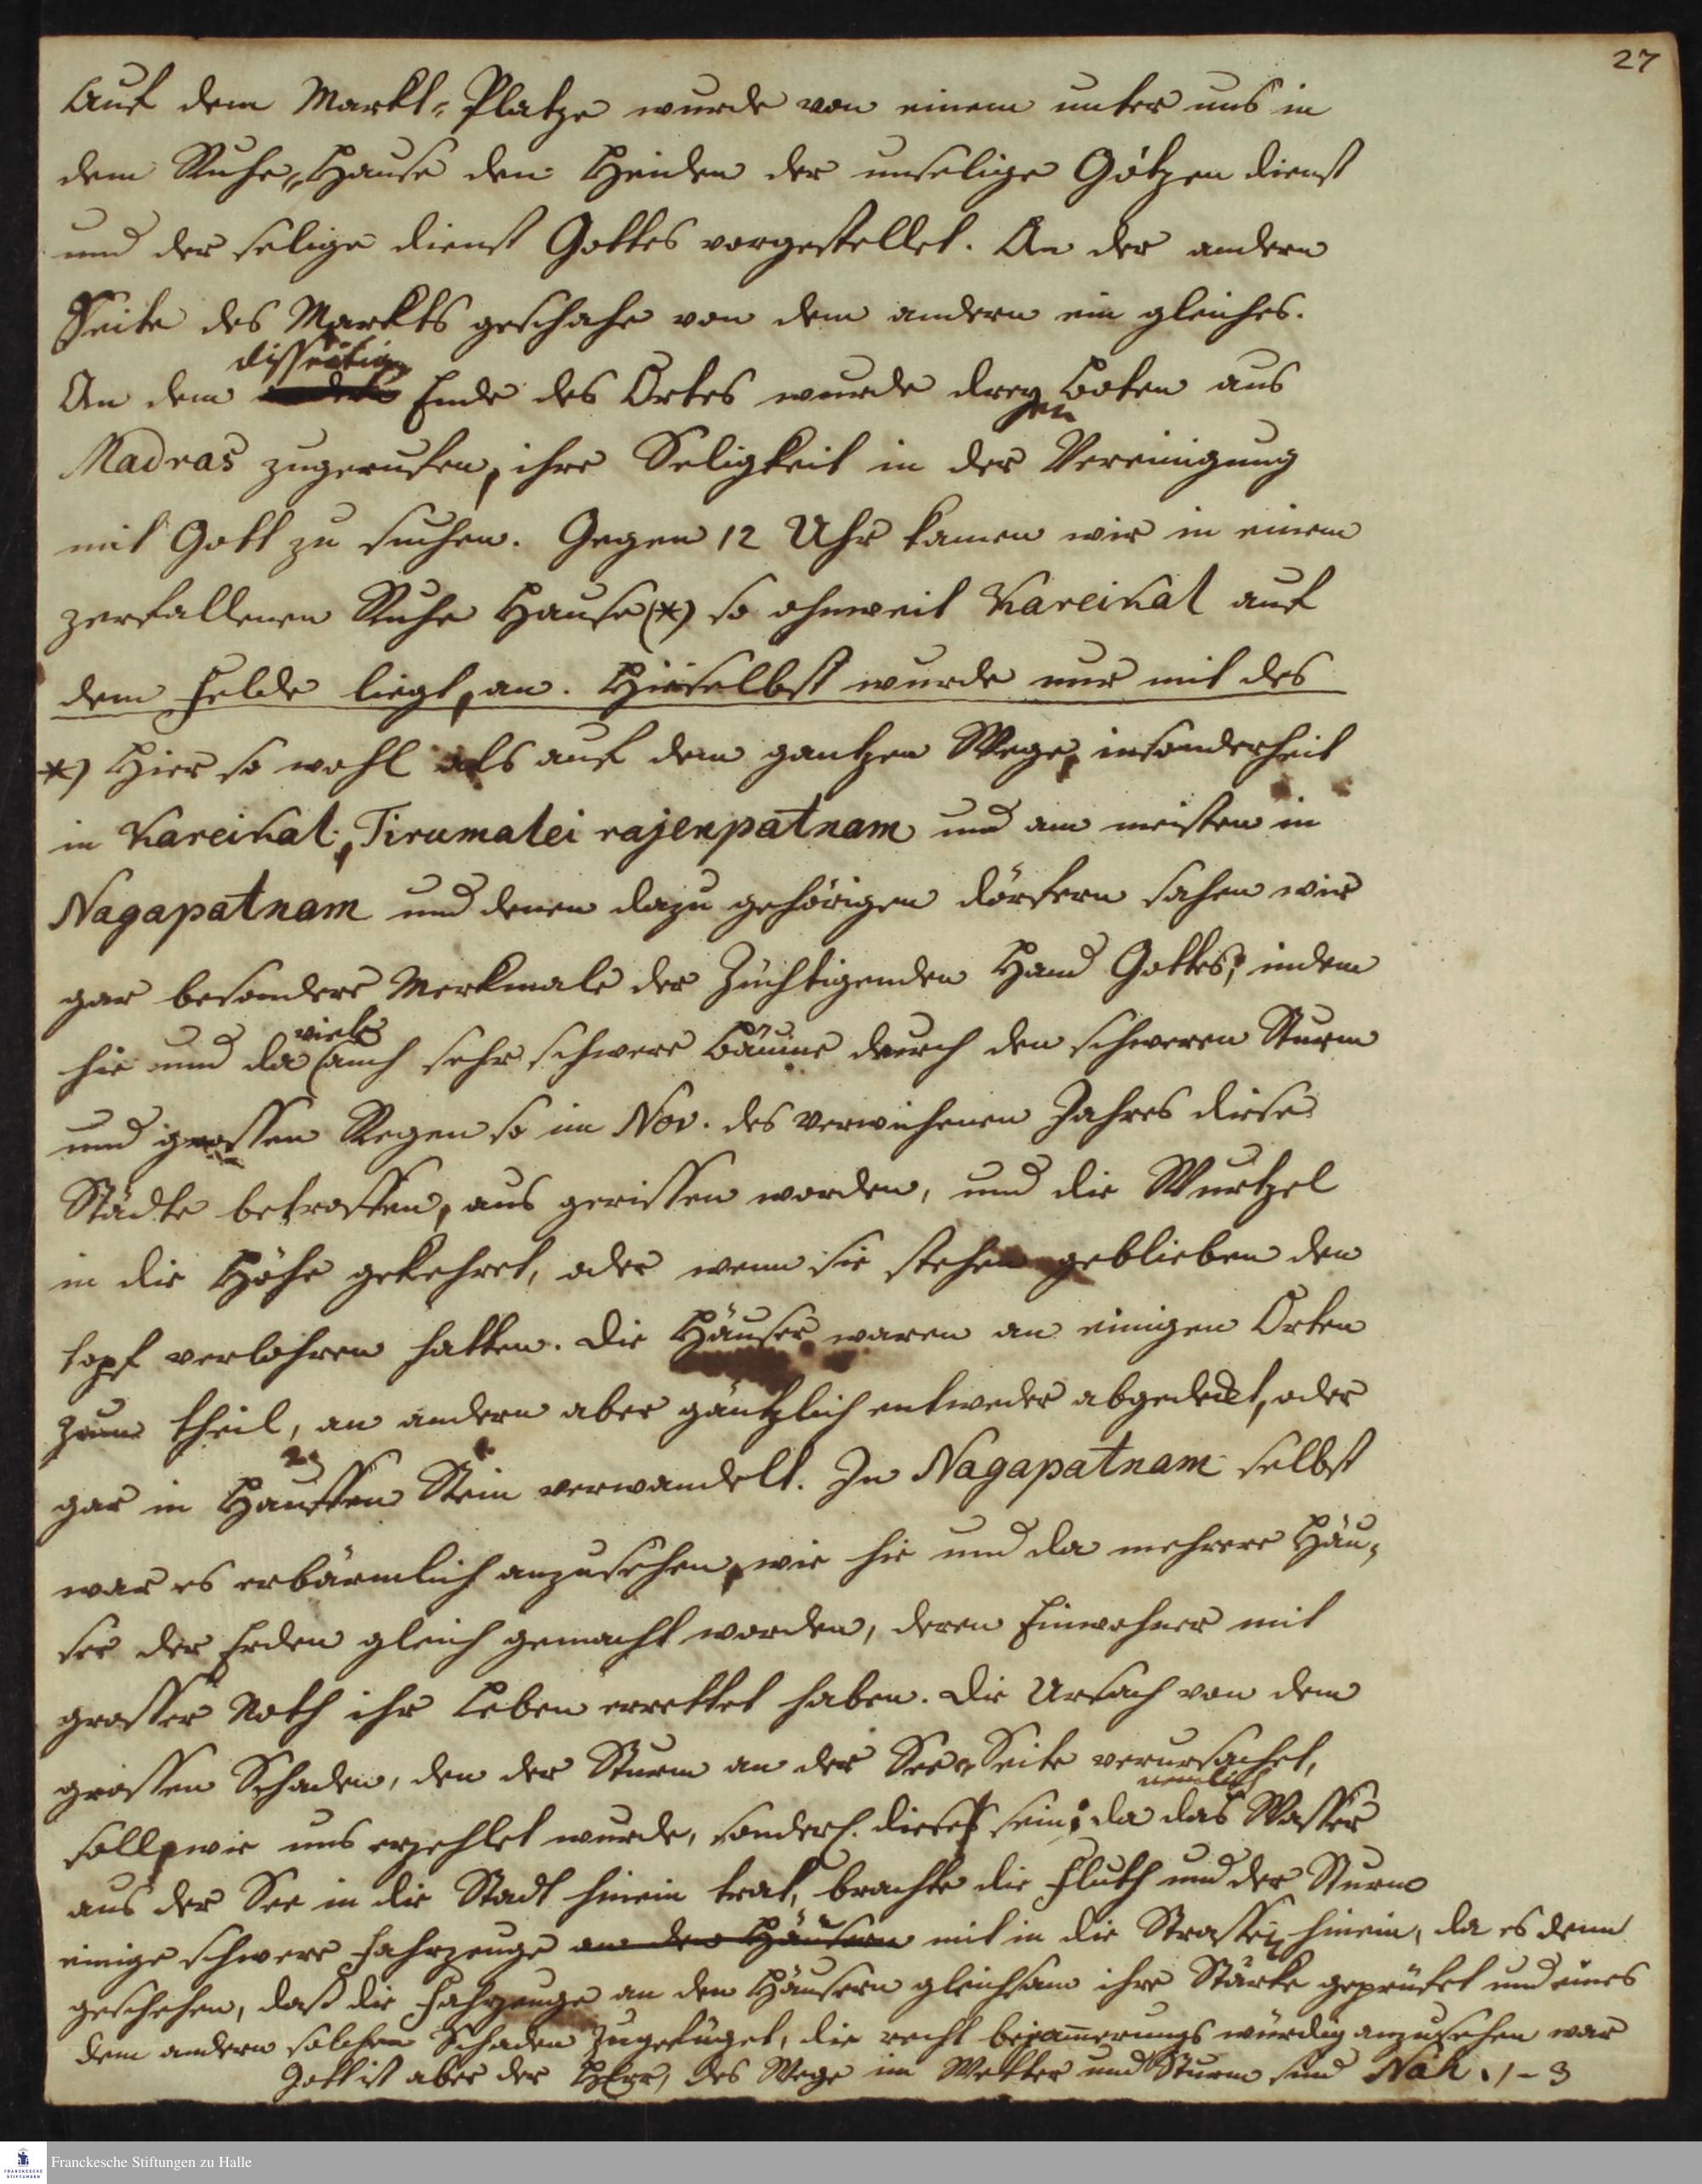 27
Auf dem Markt-Platze wurde von einem unter uns in
dem Ruhe-Hause den Heiden der unselige Götzen dienst
und der selige dienst Gottes vorgestellet. An der andern
Seite des Markts geschahe von dem andern ein gleiches.
disseitigen
An dem Ende des Ortes wurde dreyen Boten aus
Madras zugerufen, ihre Seligkeit in der Vereinigung
mit Gott zu suchen. Gegen 12 Uhr kamen wir in einem
zerfallenen Ruhe Hause (*) so ohnweit Kareikal auf
dem Felde liegt, an. Hieselbst wurde nur mit des
*) Hier so wohl als auf dem gantzen Wege, insonderheit
in Kareikal, Tirumalei rajenpatnam und am meisten in
Nagapatnam und denen dazu gehörigen dörfern sahen wir
gar besondere Merkmale der Züchtigenden Hand Gottes; indem
viele
hie und da (auch sehr schwere Bäume durch den schweren Sturm
und grossen Regen so im Nov. des verwichenen Jahres diese
Städte betroffen, aus gerissen worden, und die Wurtzel
in die Höhe gekehret, oder wenn sie stehen geblieben den
topf verlohren hatten. Die Häuser waren an einigen Orten
zum theil, an andern aber gäntzlich entweder abgedeckt, oder
gar in Hauffen Stein verwandelt. In Nagapatnam selbst
war es erbärmlich anzusehen, wie hie und da mehrere Häu-
ser der Erden gleich gemacht worden, deren Einwohner mit
grosser Noth ihr Leben errettet haben. Die Ursach von dem
grossen Schaden, den der Sturm an der See-Seite verursachet,
nemlich
soll, wie uns erzehlet wurde, sonderl. dieses sein; da das Wasser
aus der See in die Stadt hinein trat, brachte die Fluth und der Sturm
einige schwere Fahrzeuge an den Häusern mit in die Strassen hinein, da es denn
geschehen, daß die Fahrzeuge an den Häusern gleichsam ihre Stärke geprüfet und eines
dem andern solchen Schaden zugefüget, die recht bejam̄erungs würdig anzusehen war
Gott ist aber der HErr, des Wege im Wetter und Sturm sind Nah. 1-3
Franckesche Stiftungen zu Halle